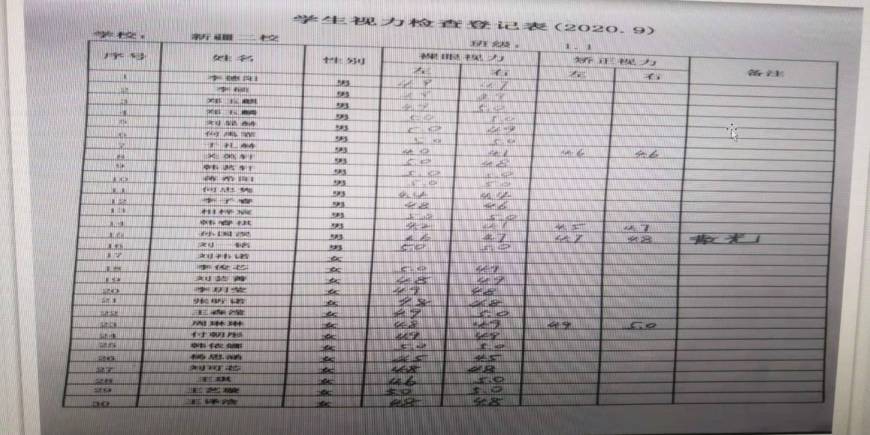 学生视力检查登记表(2020.9)
学校： 新疆二校 班级： 1.1
序号 姓名 性别 裸眼视力 矫正视力 备注
左 右 左 右
1 李德阳 男 4.9 4.7
2 李硕 男
3 郑玉麒 男 4.9 5.0
4 郑玉麟 男 5.0 5.0
5 男 5.0 4.9
6 男 5.0 5.0
7 于礼赫 男 4.0 4.1 4.6 4.6
8 关英轩 男 5.0 4.8
9 韩艺轩 男 5.0 5.0
10 蒋希阳 男 5.0 5.0
11 男 4.4 4.4
12 李子睿 男 4.8 4.6
13 男 5.0 5.0
14 韩睿祺 男 4.2 4.1 4.5 4.7
15 男 4.6 4.7 4.7 4.8 散光
16 刘 男 5.0 5.0
17 女
18 李俊芯 女 5.0 4.9
19 女 4.8 4.9
20 李玥莹 女 4.9 4.8
21 张昕诺 女 4.8 4.8
22 女 4.9 5.0
23 周琳琳 女 4.8 4.9 4.9 5.0
24 付朝彤 女 4.9 4.9
25 韩依娜 女 5.0 5.0
26 杨思涵 女 4.5 4.5
27 刘可芯 女 4.8 4.8
28 王琪 女 4.6 5.0
29 王艺璇 女 5.0 5.0
30 王译涵 女 4.8 4.8